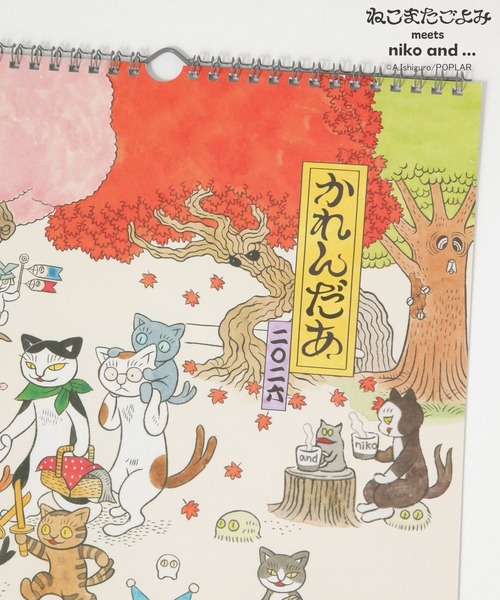 ねこまたごよみ
meets
niko and ...
©A.Ishiguro/POPLAR
かれんだあ
二〇二六
and
niko